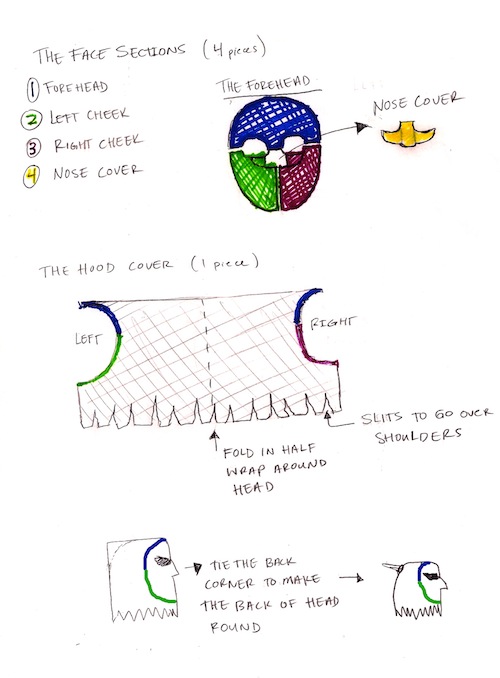 THE FACE SECTIONS (4 pieces)
1 FOREHEAD
2 LEFT CHEEK
3 RIGHT CHEEK
4 NOSE COVER
THE FOREHEAD
NOSE COVER
THE HOOD COVER (1 piece)
LEFT
RIGHT
SLITS TO GO OVER
SHOULDERS
FOLD IN HALF
WRAP AROUND
HEAD
TIE THE BACK
CORNER TO MAKE
THE BACK OF HEAD
ROUND